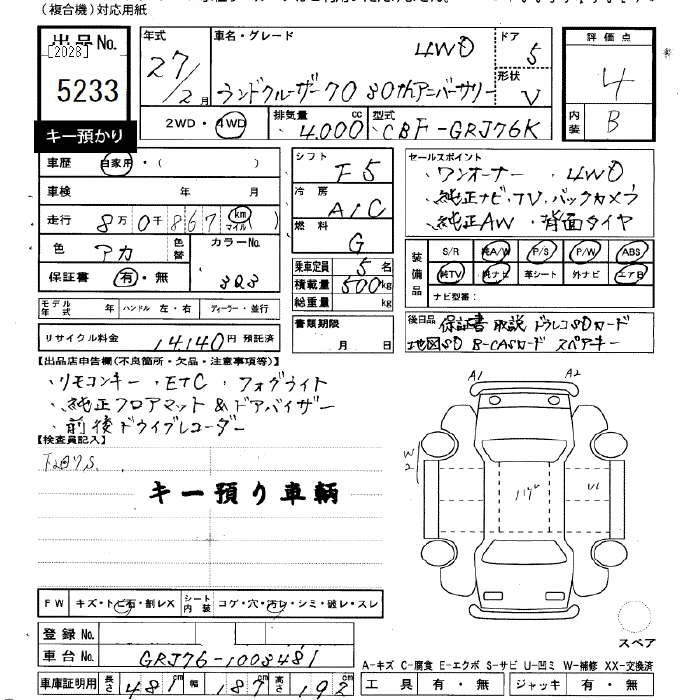 (複合機)対応用紙
出品No.
[2028]
5233
キー預かり
年式
27/2月
車名・グレード
4WD
ランドクルーザー70 30thアニバーサリー
ドア
5
形状
V
評価点
4
内装
B
2WD・4WD
排気量
4.000cc
型式
CBF-GRJ76K
車歴
自家用・( )
車検 年 月
走行 8万0千867 km マイル
色 アカ
色替
カラーNo.
3Q3
保証書 有・無
モデル年式 年 ハンドル 左・右 ディーラー・並行
リサイクル料金 14140円 預託済
シフト
F5
冷房
A/C
燃料
G
乗車定員 5名
積載量 500kg
総重量 kg
書類期限
月 日
セールスポイント
・ワンオーナー ・4WD
・純正ナビ・TV・バックカメラ
・純正AW ・背面タイヤ
装備品
S/R 純A/W P/S P/W ABS
純TV 純ナビ 革シート 外ナビ エアB
ナビ型番:
後日品
保証書 取説 ドラレコSDカード
地図SD B-CASカード スペアキー
【出品店申告欄(不良箇所・欠品・注意事項等)】
・リモコンキー ・ETC ・フォグライト
・純正フロアマット&ドアバイザー
・前後ドライブレコーダー
【検査員記入】
キー預り車輌
A1 A2
W2
FW キズ・トビ石・割レX シート内装 コゲ・穴・汚レ・シミ・破レ・スレ
登録No.
車台No. GRJ76-1008481
車庫証明用 長さ 481cm 幅 187cm 高さ 192cm
スペア
A-キズ C-腐食 E-エクボ S-サビ U-凹ミ W-補修 XX-交換済
工具 有・無 ジャッキ 有・無